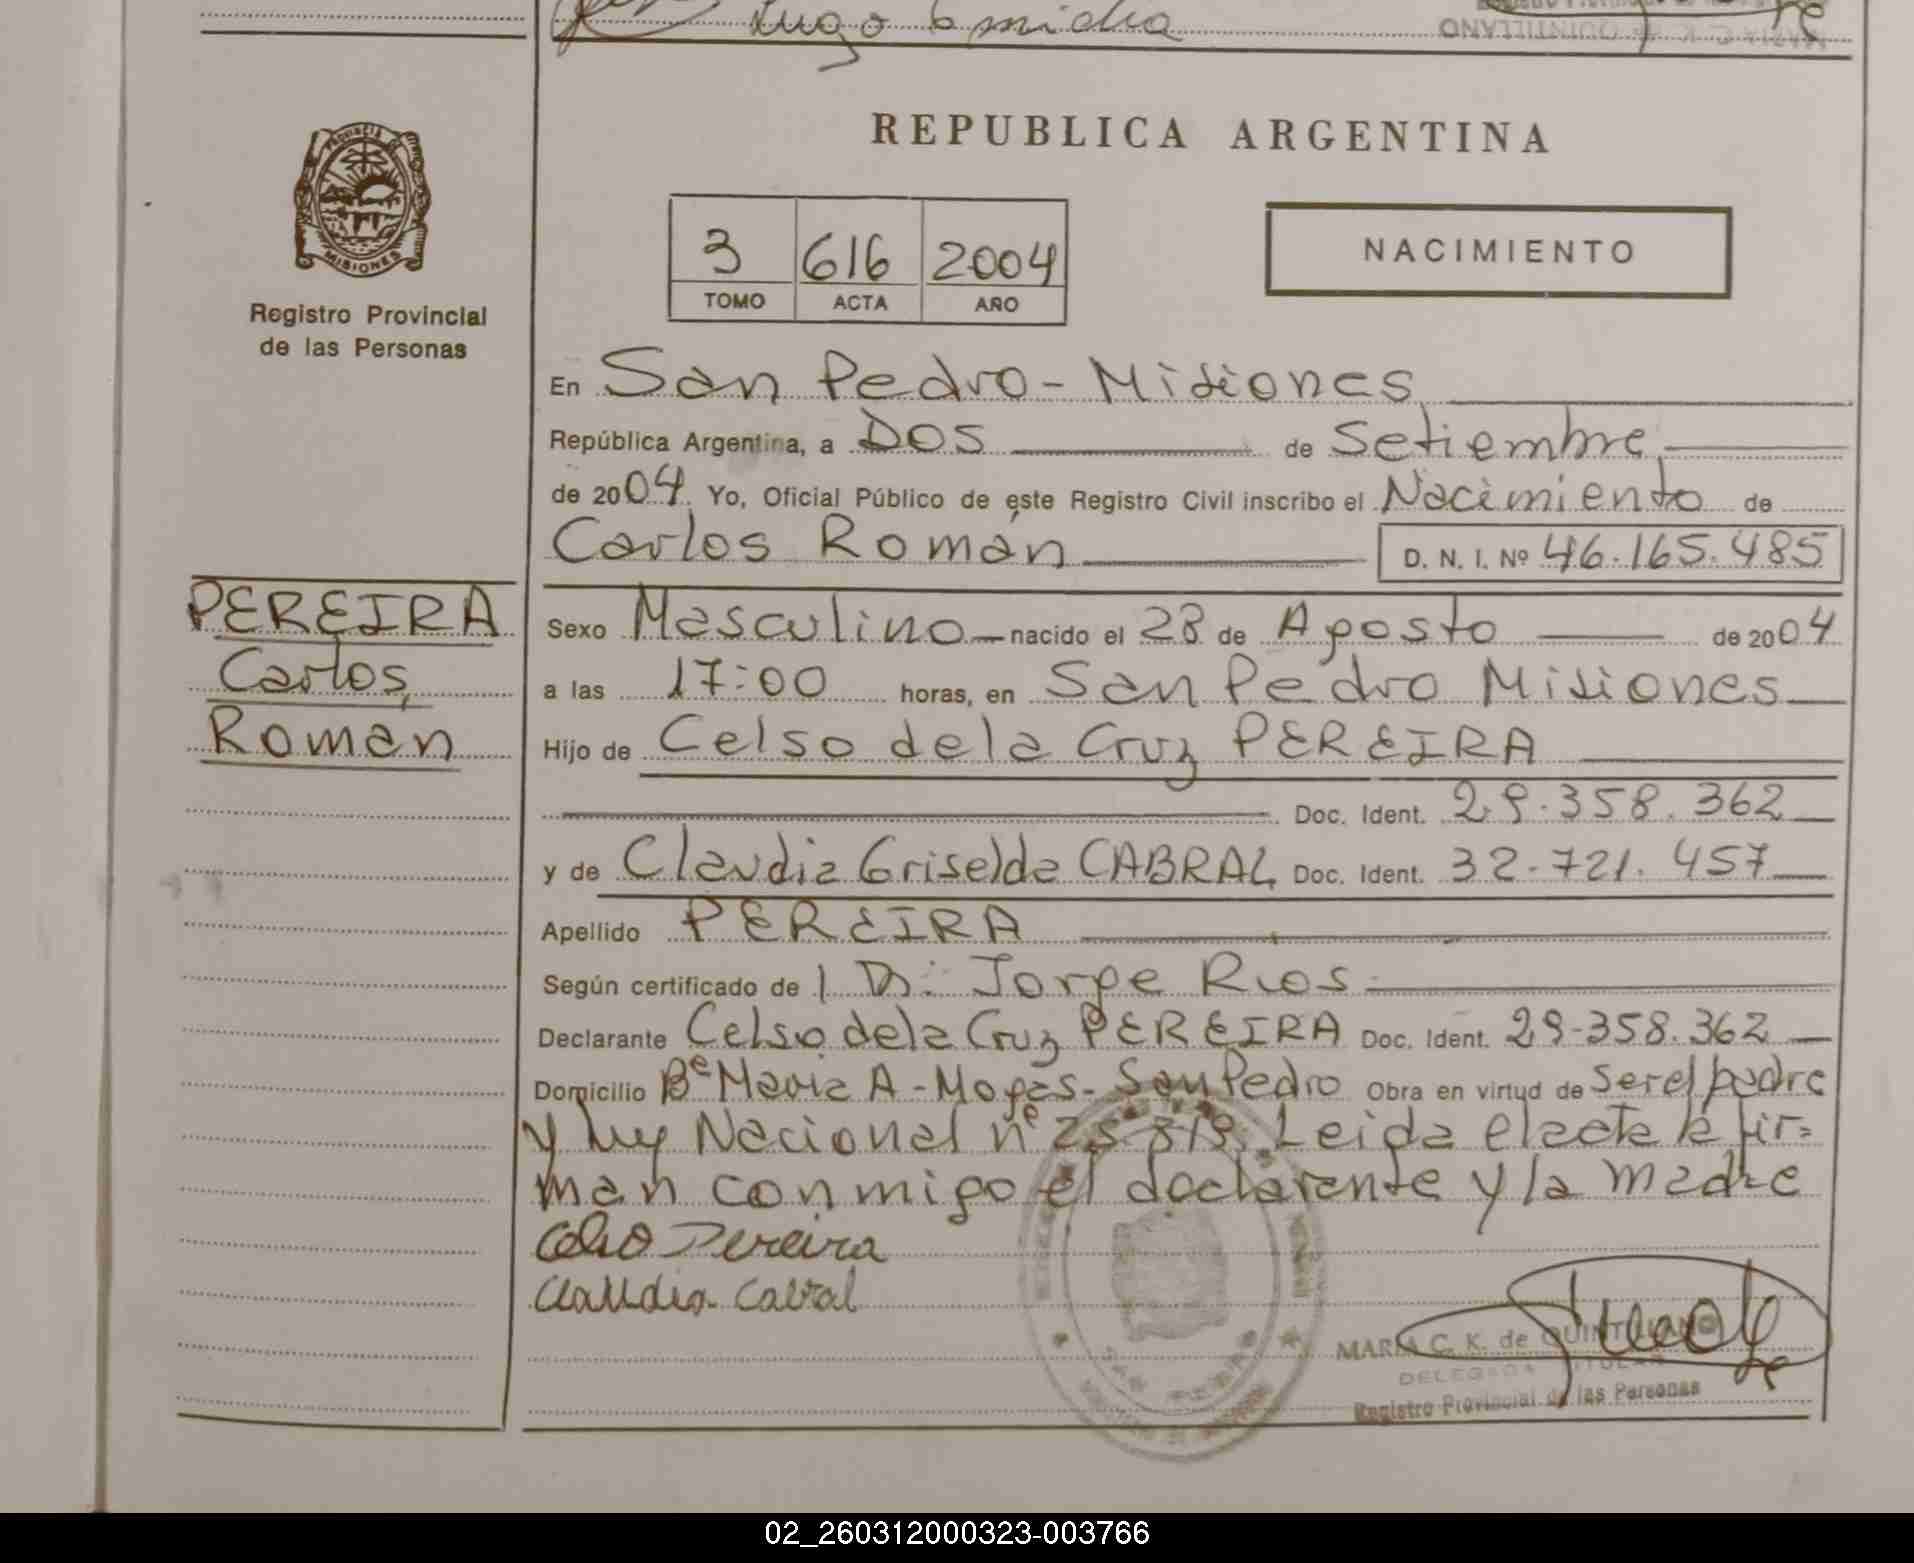 Lugo Emidia
MARIA C. K. de QUINTILLANO
REPUBLICA ARGENTINA
PROVINCIA DE MISIONES
Registro Provincial
de las Personas
3 616 2004
TOMO ACTA AÑO
NACIMIENTO
En San Pedro - Misiones
República Argentina, a Dos de Setiembre
de 2004 Yo, Oficial Público de este Registro Civil inscribo el Nacimiento de
Carlos Román D. N. I. Nº 46.165.485
PEREIRA
Carlos,
Roman
Sexo Masculino nacido el 28 de Agosto de 2004
a las 17:00 horas, en San Pedro Misiones
Hijo de Celso de la Cruz PEREIRA
Doc. Ident. 29.358.362
y de Claudia Griselda CABRAL Doc. Ident. 32.721.457
Apellido PEREIRA
Según certificado de Dr. Jorge Rios
Declarante Celso de la Cruz PEREIRA Doc. Ident. 29.358.362
Domicilio Bº Maria A - Mogas - San Pedro Obra en virtud de Ser el padre
y Ley Nacional nº 25.819. Leida el acta la fir=
man conmigo el declarante y la madre
Celso Pereira
Claudia Cabral
MARIA C. K. de QUINTILLANO
DELEGADA TITULAR
Registro Provincial de las Personas
02_260312000323-003766